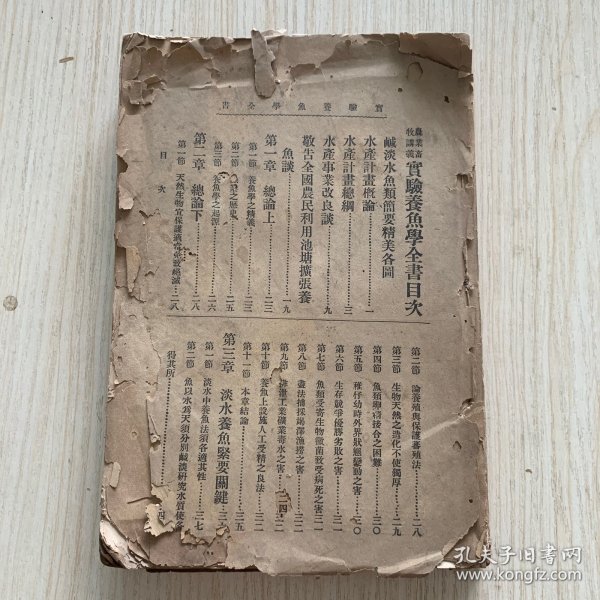 實驗養魚學全書
農業畜牧講義 實驗養魚學全書目次
鹹淡水魚類簡要精美各圖
水產計畫概論……一
水產計畫總綱……三
水產事業改良談……九
敬告全國農民利用池塘擴張養
魚談……一九
第一章 總論上……二三
第一節 養魚學之精義……二三
第二節 之歷史……二五
第三節 養魚學之起源……二六
第二章 總論下……二八
第一節 天然生物宜保護適當免致絕滅……二八
目次
第二節 論養殖與保護蕃殖法……二八
第三節 生物天然之造化不使獨厚……二九
第四節 魚類卵精接合之困難……三〇
第五節 稚仔幼時外界狀態變動之害……三〇
第六節 生存競爭優勝劣敗之害……三一
第七節 魚類受寄生物黴菌致受病死之害……三一
第八節 盡法捕採竭澤漁撈之害……三二
第九節 工業礦業毒水之害
第十節 養魚上設施人工受精之良法……三二
第十一節 本章結論……三五
第三章 淡水養魚緊要關鍵
第一節 淡水中養魚法須各適其性……三七
第二節 魚以水為天須分別鹹淡研究水質使各
得其所……四
孔夫子旧书网
www.kongfz.com